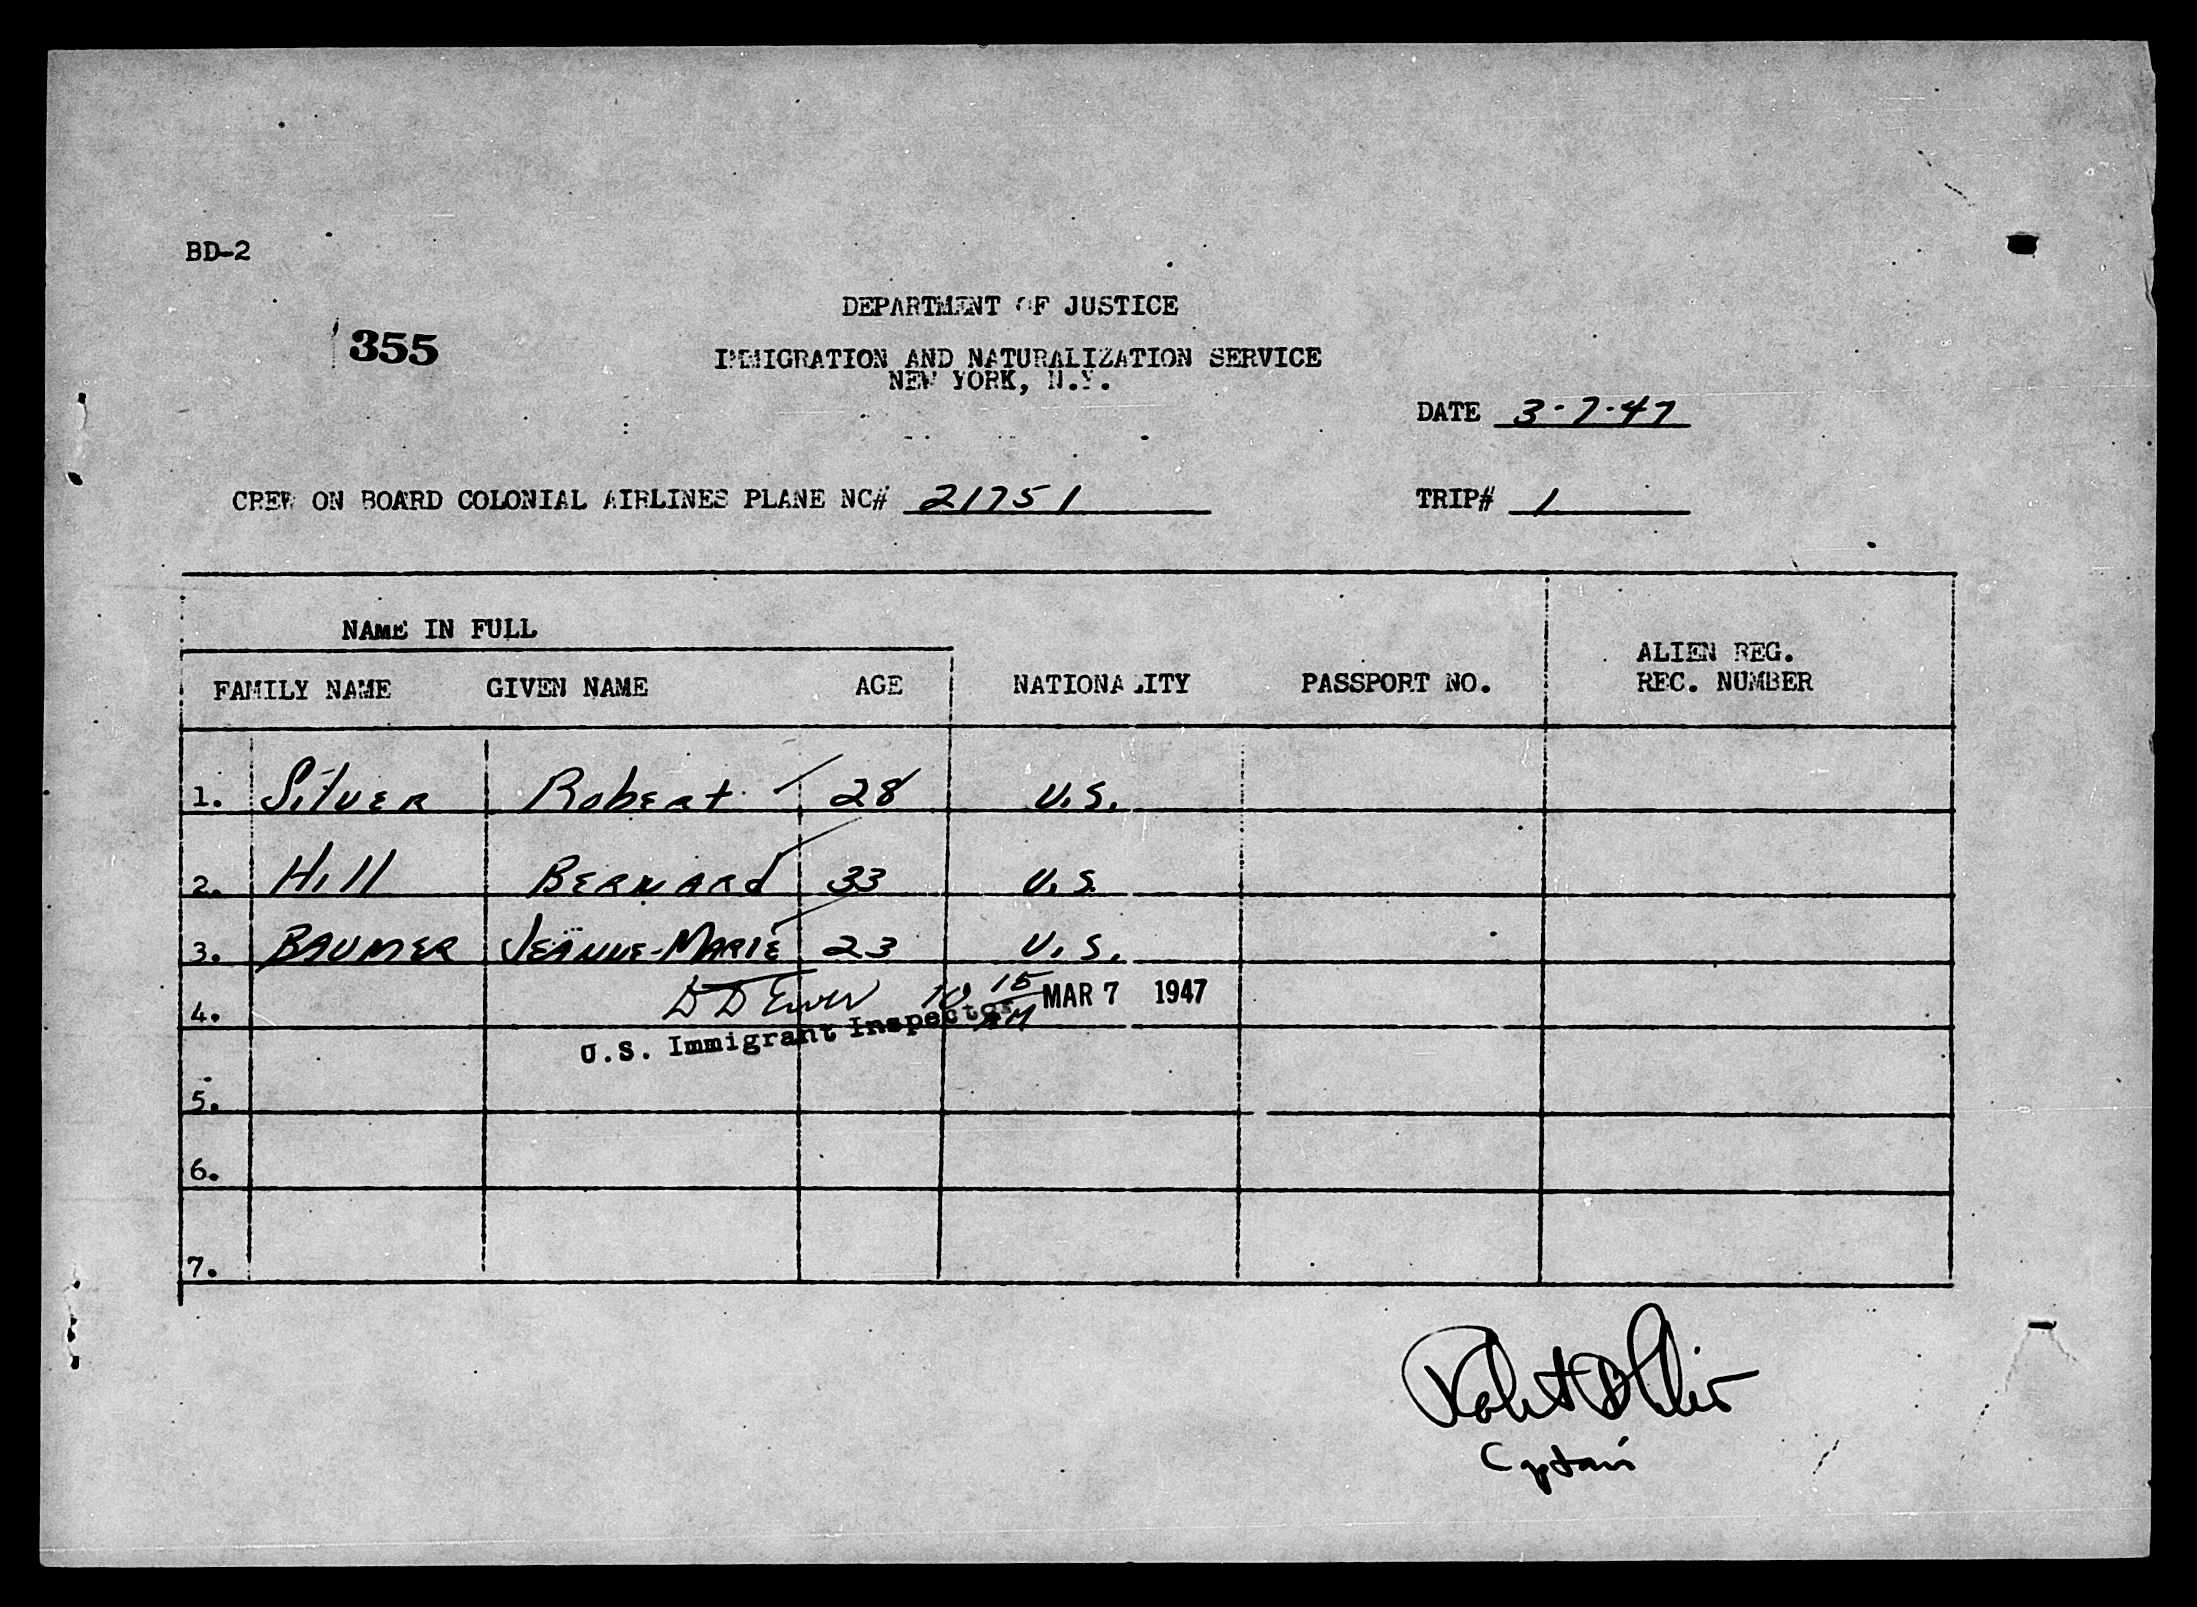 BD-2
355
DEPARTMENT OF JUSTICE
IMMIGRATION AND NATURALIZATION SERVICE
NEW YORK, N.Y.
DATE 3-7-47
CREW ON BOARD COLONIAL AIRLINES PLANE NC# 21751
TRIP# 1
NAME IN FULL
FAMILY NAME GIVEN NAME AGE NATIONALITY PASSPORT NO. ALIEN REG. REC. NUMBER
1. Silver Robert 28 U.S.
2. Hill BERNARD 33 U.S.
3. BAUMER JEANNE-MARIE 23 U.S.
4. D D 10 15 AM MAR 7 1947
U.S. Immigrant Inspector
5.
6.
7.
Robert
Captain